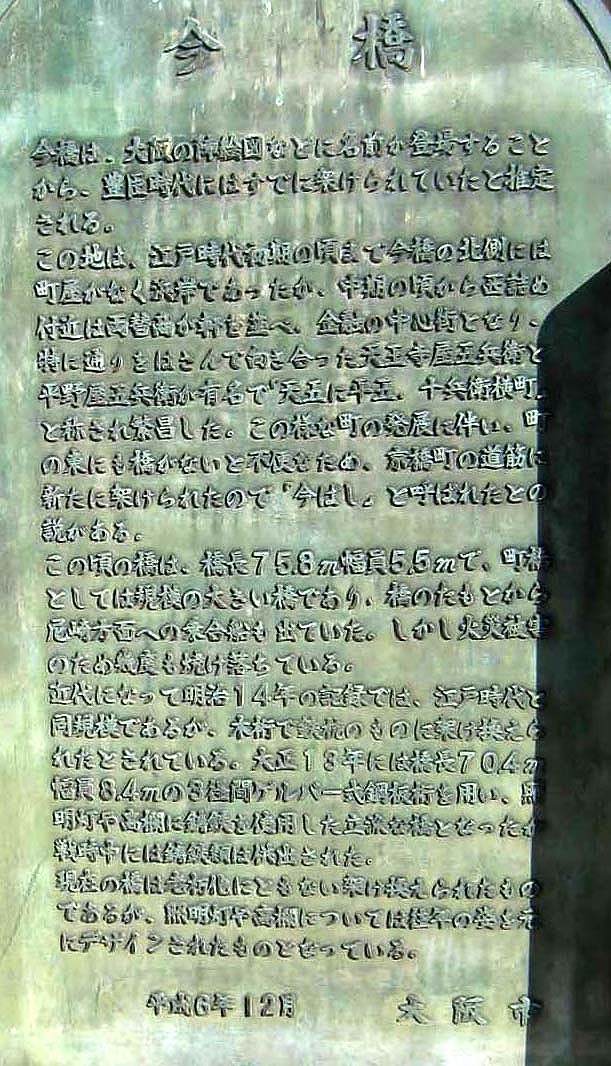 今橋
今橋は、大阪の御絵図などに名前が登場すること
から、豊臣時代にはすでに架けられていたと推定
される。
この地は、江戸時代初期の頃まで今橋の北側には
町屋がなく浜岸であったが、中期の頃から西詰め
付近は両替商が軒を並べ、金融の中心街となり、
特に通りをはさんで向き合った天王寺屋五兵衛と
平野屋五兵衛が有名で「天五に平五、十兵衛横町」
と称され繁昌した。この様な町の発展に伴い、町
の東にも橋がないと不便なため、京橋町の道筋に
新たに架けられたので「今ばし」と呼ばれたとの
説がある。
この頃の橋は、橋長75.8m幅員5.5mで、町橋
としては規模の大きい橋であり、橋のたもとから
尼崎方面への乗合船も出ていた。しかし火災被害
のため幾度も焼け落ちている。
近代になって明治14年の記録では、江戸時代と
同規模であるが、木桁で鉄杭のものに架け換えら
れたとされている。大正13年には橋長70.4m
幅員8.4mの3径間ゲルバー式鋼板桁を用い、照
明灯や高欄に鋳鉄を使用した立派な橋となったが
戦時中には鋳鉄類は供出された。
現在の橋は老朽化にともない架け換えられたもの
であるが、照明灯や高欄については往年の姿を元
にデザインされたものとなっている。
平成6年12月 大阪市